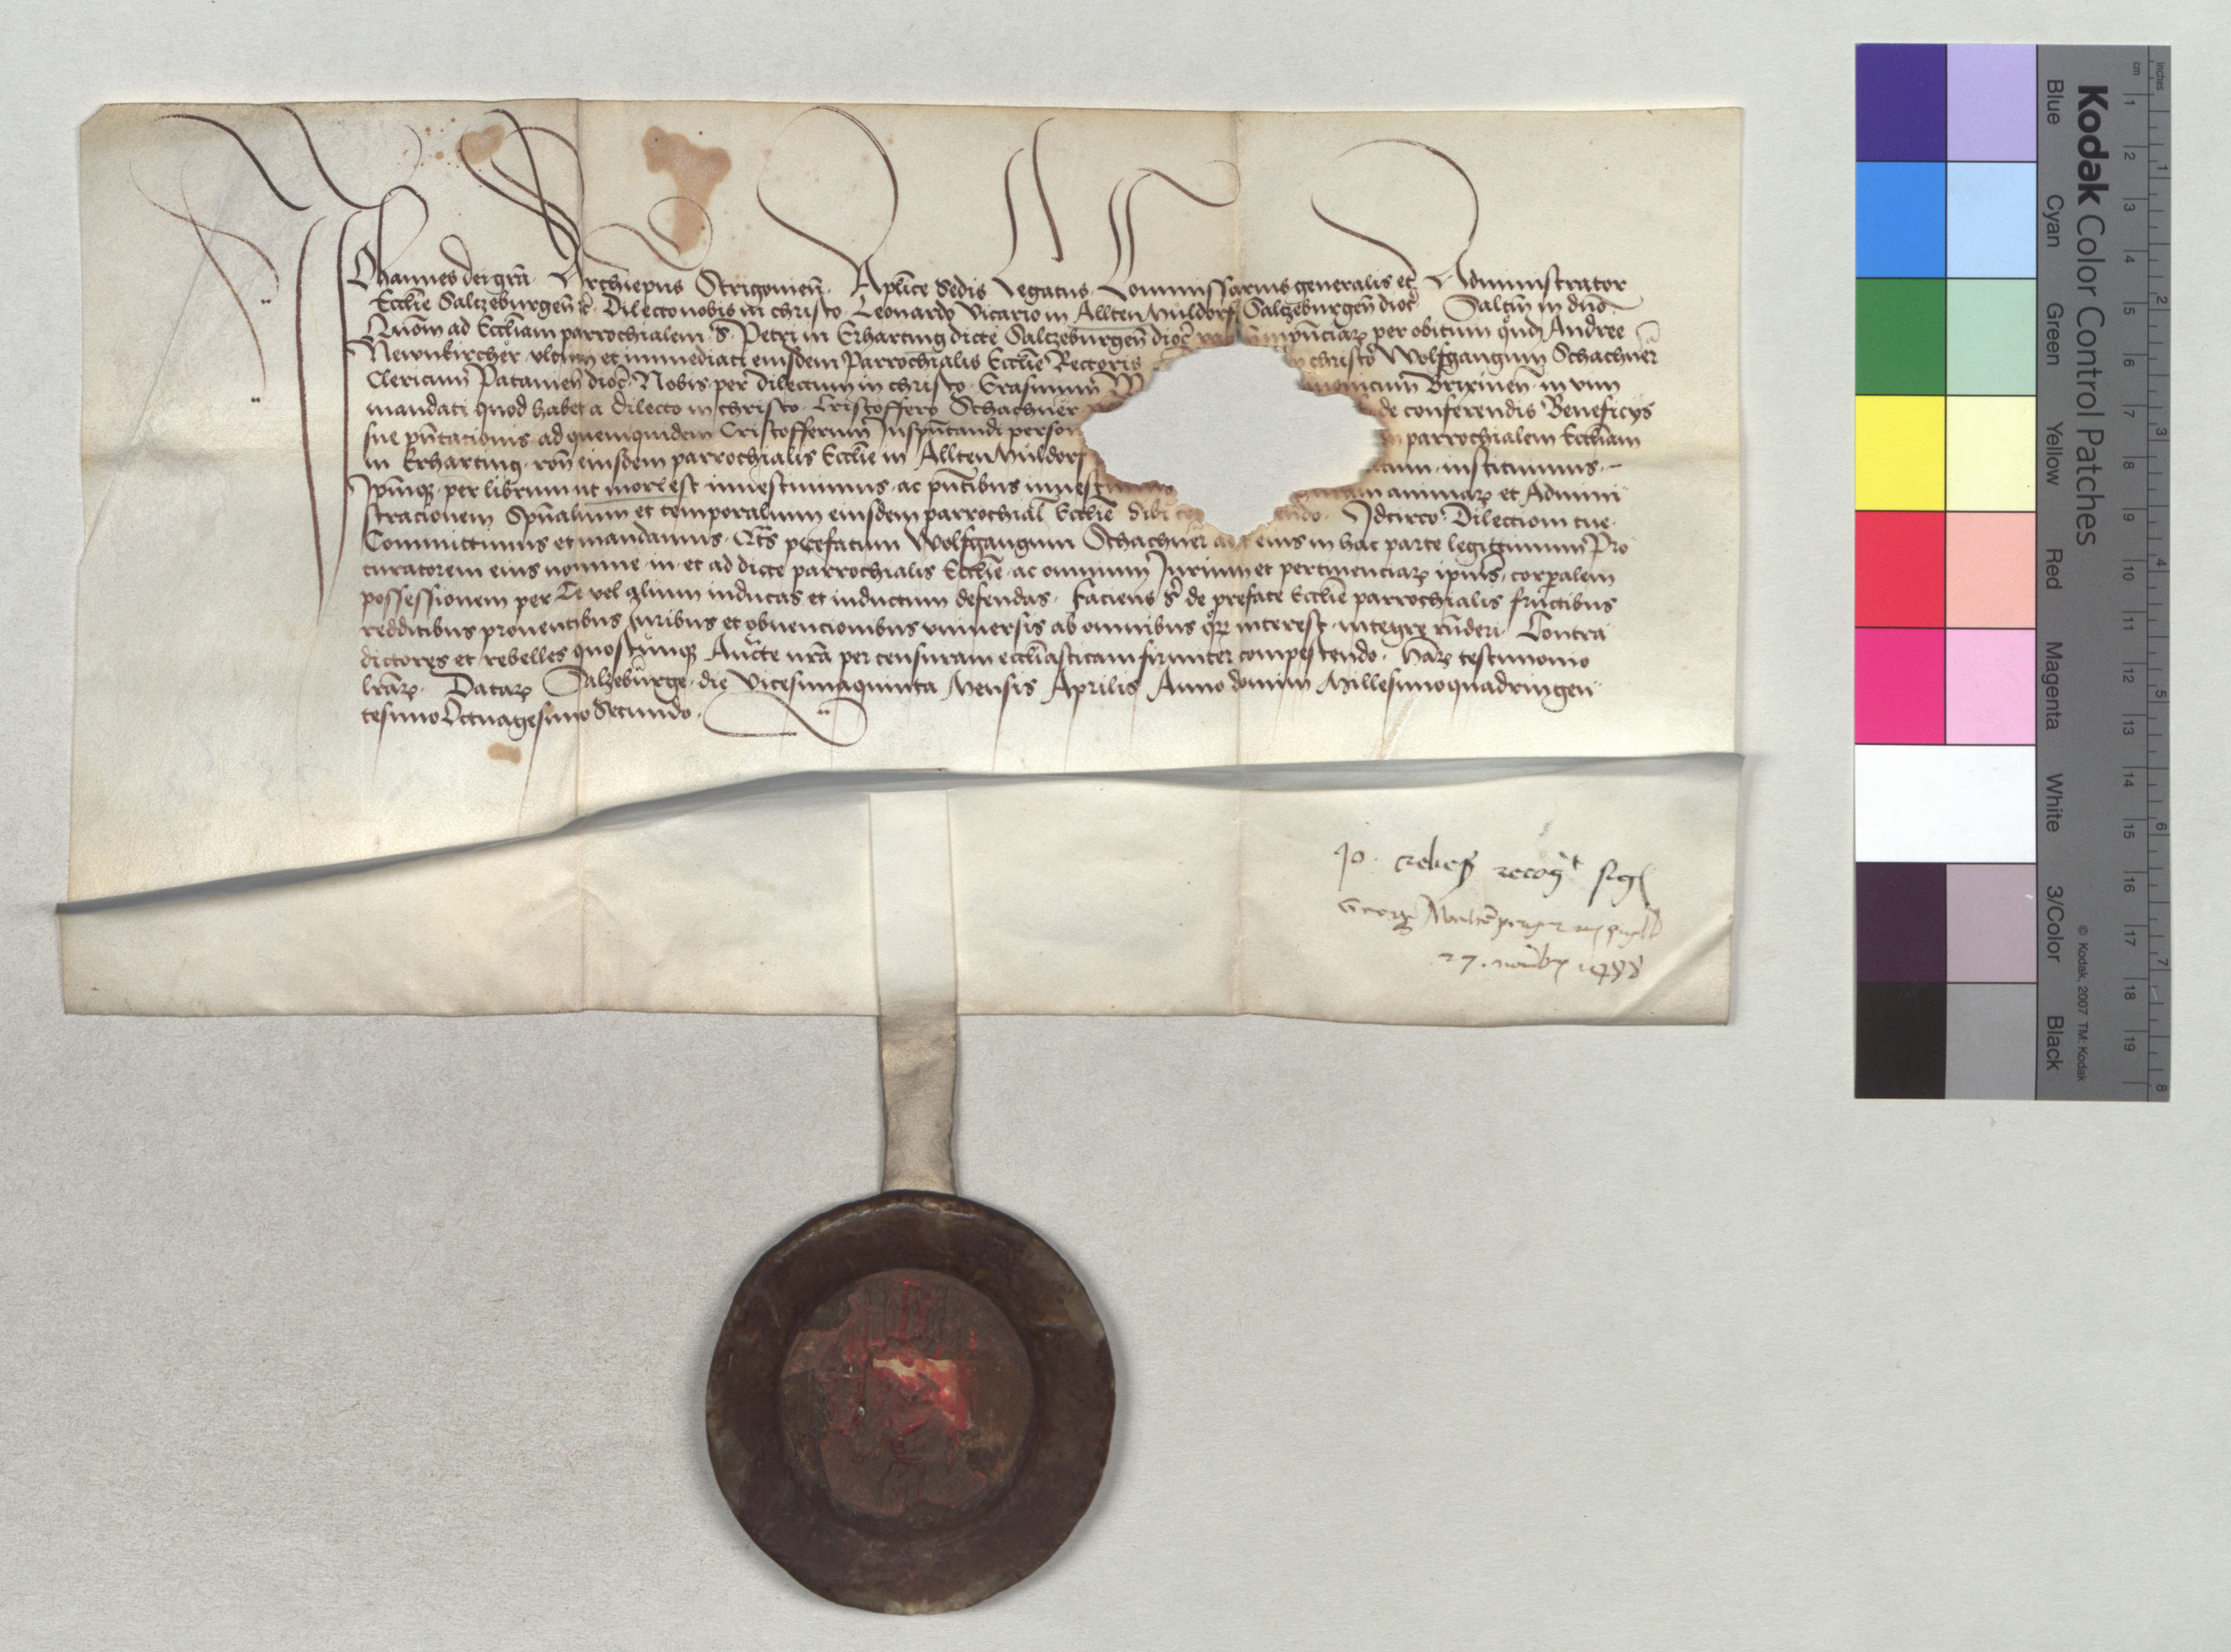 Johannes dei grã Archiepus Strigonieñ Aplice Sedis Legatus Commissarius generalis et Administrator
Ecclie Salczeburgeñ rc̃ Dilecto nobis in christo Leonardo Vicario in Allten Müldorf Salczeburgeñ dioc̃ Saltm̃ in dño
Quom̃ ad Eccliam parrochialem s̃ Petri in Erharting dicte Salczeburgeñ dioc̃ per obitum qũd Andree
Newnkircher ultimi et immediati eiusdem Parrochialis Ecclie Rectoris christo Wolfgangum Schachner
Clericum Patauieñ dioc̃ Nobis per dilectum in christo Erasmum Brixineñ in vim
mandati quod habet a dilecto in christo Cristoffero Schachner de conferendis Beneficijs
sue pñtacionis ad quemquidem Cristofferum Juspñtandi person parrochialem Eccliam
in Erharting roñ eiusdem parrochialis Ecclie in Allten Müldorf instituimus
Ipm̃qz per librum ut moris est inuestiuimus ac pñtibus inuest animarz et Admini
stracionem Spũalium et temporalium eiusdem parrochial Ecclie sibi endo Idcirco Dilectioni tue
Committimus et mandamus Qts̃ prefatum Wolfgangum Schachner eius in hac parte legittimum Pro
curatorem eius nomine in et ad dicte parrochialis Ecclie ac omnium Jurium et pertinenciarz ipius corporalem
possessionem per Te vel alium inducas et inductum defendas Faciens s̃ de prefate Ecclie parrochialis fructibus
redditibus prouentibus Juribus et obuencionibus vniuersis ab omnibus qrz interest integre rñderi Contra
dictores et rebelles quoscunqz Aucte nrã per censuram eccliasticam firmiter compescendo Harz testimonio
lrarz Datarz Salzeburge die Vicesimaquinta Mensis Aprilis Anno domini Millesimoquadringen
tesimo Octuagesimo Secundo
Jo. recogt sigl
Georg
27. 1488
Kodak Color Control Patches
Blue Cyan Green Yellow Red Magenta White 3/Color Black
© Kodak, 2007 TM: Kodak
cm 1 2 3 4 5 6 7 8 9 10 11 12 13 14 15 16 17 18 19
inches 1 2 3 4 5 6 7 8